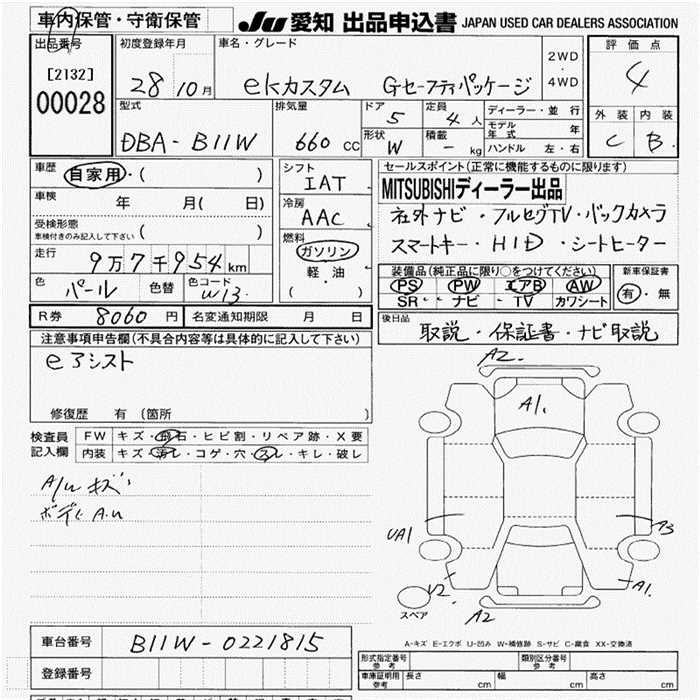 車内保管・守衛保管
JU 愛知 出品申込書 JAPAN USED CAR DEALERS ASSOCIATION
出品番号
[2132]
00028
初度登録年月
28 10月
車名・グレード
ekカスタム Gセーフティパッケージ
2WD
・
4WD
評価点
4
外装 内装
C B
型式
DBA-B11W
排気量
660 CC
ドア
5
定員
4人
形状
W
積載
- kg
ディーラー・並行
モデル年式 年
ハンドル 左・右
車歴
自家用・( )
車検
年 月( 日)
受検形態
車検付きのみ記入して下さい ( )
走行
9万7千954km
色
パール
色替
色コード
W13
シフト
IAT
冷房
AAC
燃料
ガソリン
軽・油
( )
セールスポイント(正常に機能するものに限ります)
MITSUBISHIディーラー出品
社外ナビ・フルセグTV・バックカメラ
スマートキー・HID・シートヒーター
装備品(純正品に限り○をつけてください)
PS PW エアB AW
SR ナビ TV カワシート
新車保証書
有・無
R券 8060円
名変通知期限 月 日
後日品
取説・保証書・ナビ取説
注意事項申告欄(不具合内容等は具体的に記入して下さい)
eアシスト
修復歴 有 (箇所 )
検査員
記入欄
FW キズ・飛石・ヒビ割・リペア跡・X要
内装 キズ・汚レ・コゲ・穴・スレ・キレ・破レ
A/u キズ
ボディ A.u
A2
A1.
UA1
A3
V2
A1.
A2
スペア
A-キズ E-エクボ U-凹み W-補修跡 S-サビ C-腐食 XX-交換済
車台番号
B11W-0221815
登録番号
形式指定番号
参考
類別区分番号
参考
車庫証明用
参考
長さ cm
幅 cm
高さ cm